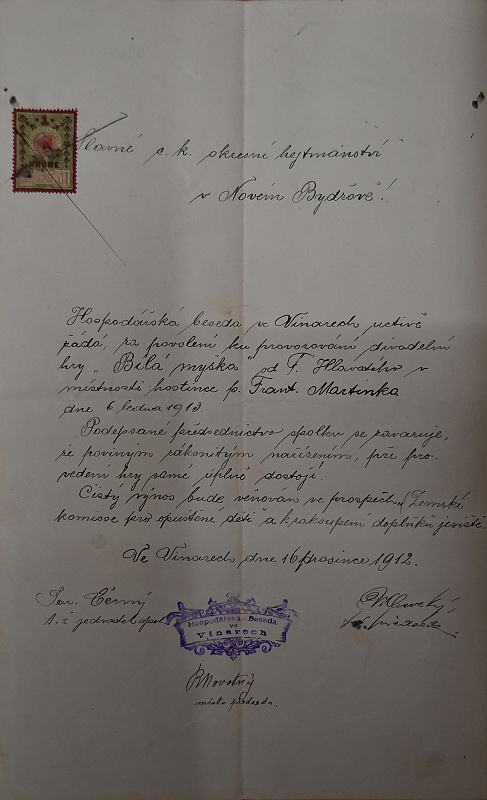 1
KRONE
Slavné c. k. okresní hejtmanství
v Novém Bydžově!
Hospodářská beseda ve Vinarech uctivě
žádá, za povolení ku provozování divadelní
hry „Bílá myška" od F. Hlavatého v
místnosti hostince p. Frant. Martinka
dne 6. ledna 1913.
Podepsané předsednictvo spolku se zavazuje,
že povinným zákonitým nařízením, při pro-
vedení hry samé úplně dostojí.
Čistý výnos bude věnován ve prospěch „Zemské
komisse pro opuštěné děti" a k zakoupení doplňků jeviště.
Ve Vinarech dne 16 prosince 1912.
Jar. Černý
t. č. jednatel
Hospodářská-Beseda
ve
Vinarech
Novotný
místo předseda.